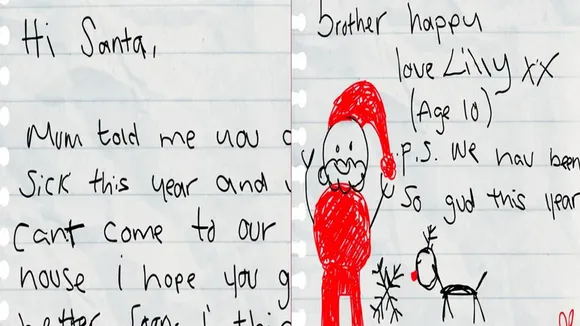 Hi Santa,
Mum told me you
Sick this year and
Cant come to our
house i hope you
better soon i
brother happy
love Lilly xx
(Age 10)
P.S. We hav been
So gud this year